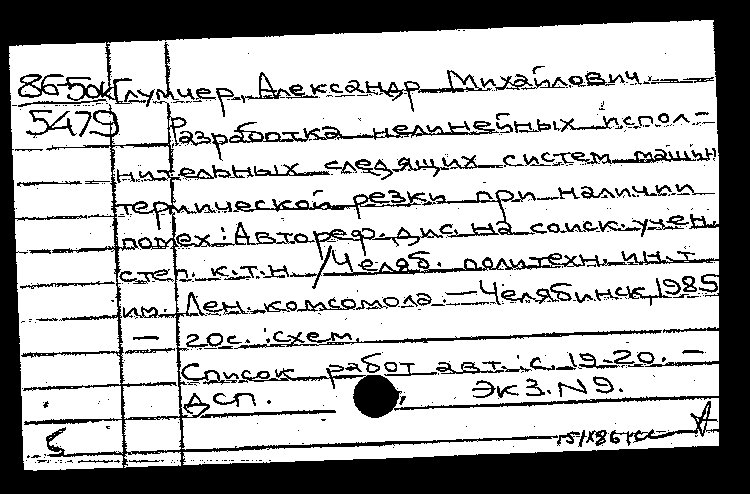 86-5ок Глумчер, Александр Михайлович.
5479 Разработка нелинейных испол-
нительных следящих систем машин
термической резки при наличии
помех: Автореф. дис. на соиск. учен.
степ. к.т.н. / Челяб. политехн. ин-т
им. Лен. комсомола. — Челябинск, 1985
— 20с.: схем.
Список работ авт.: с. 19-20. —
ДСП. Экз. N9.